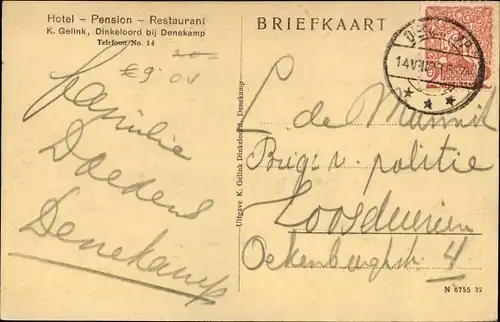 Hotel – Pension – Restaurant
K. Gelink, Dinkeloord bij Denekamp
Telefoon No. 14
€9
familie
Doedens
Denekamp
Uitgave K. Gelink Dinkeloord, Denekamp
BRIEFKAART
DENEKAMP
de
Brig: v. politie
Loosduinen
Ockenburghstr. 4
N 6755 72